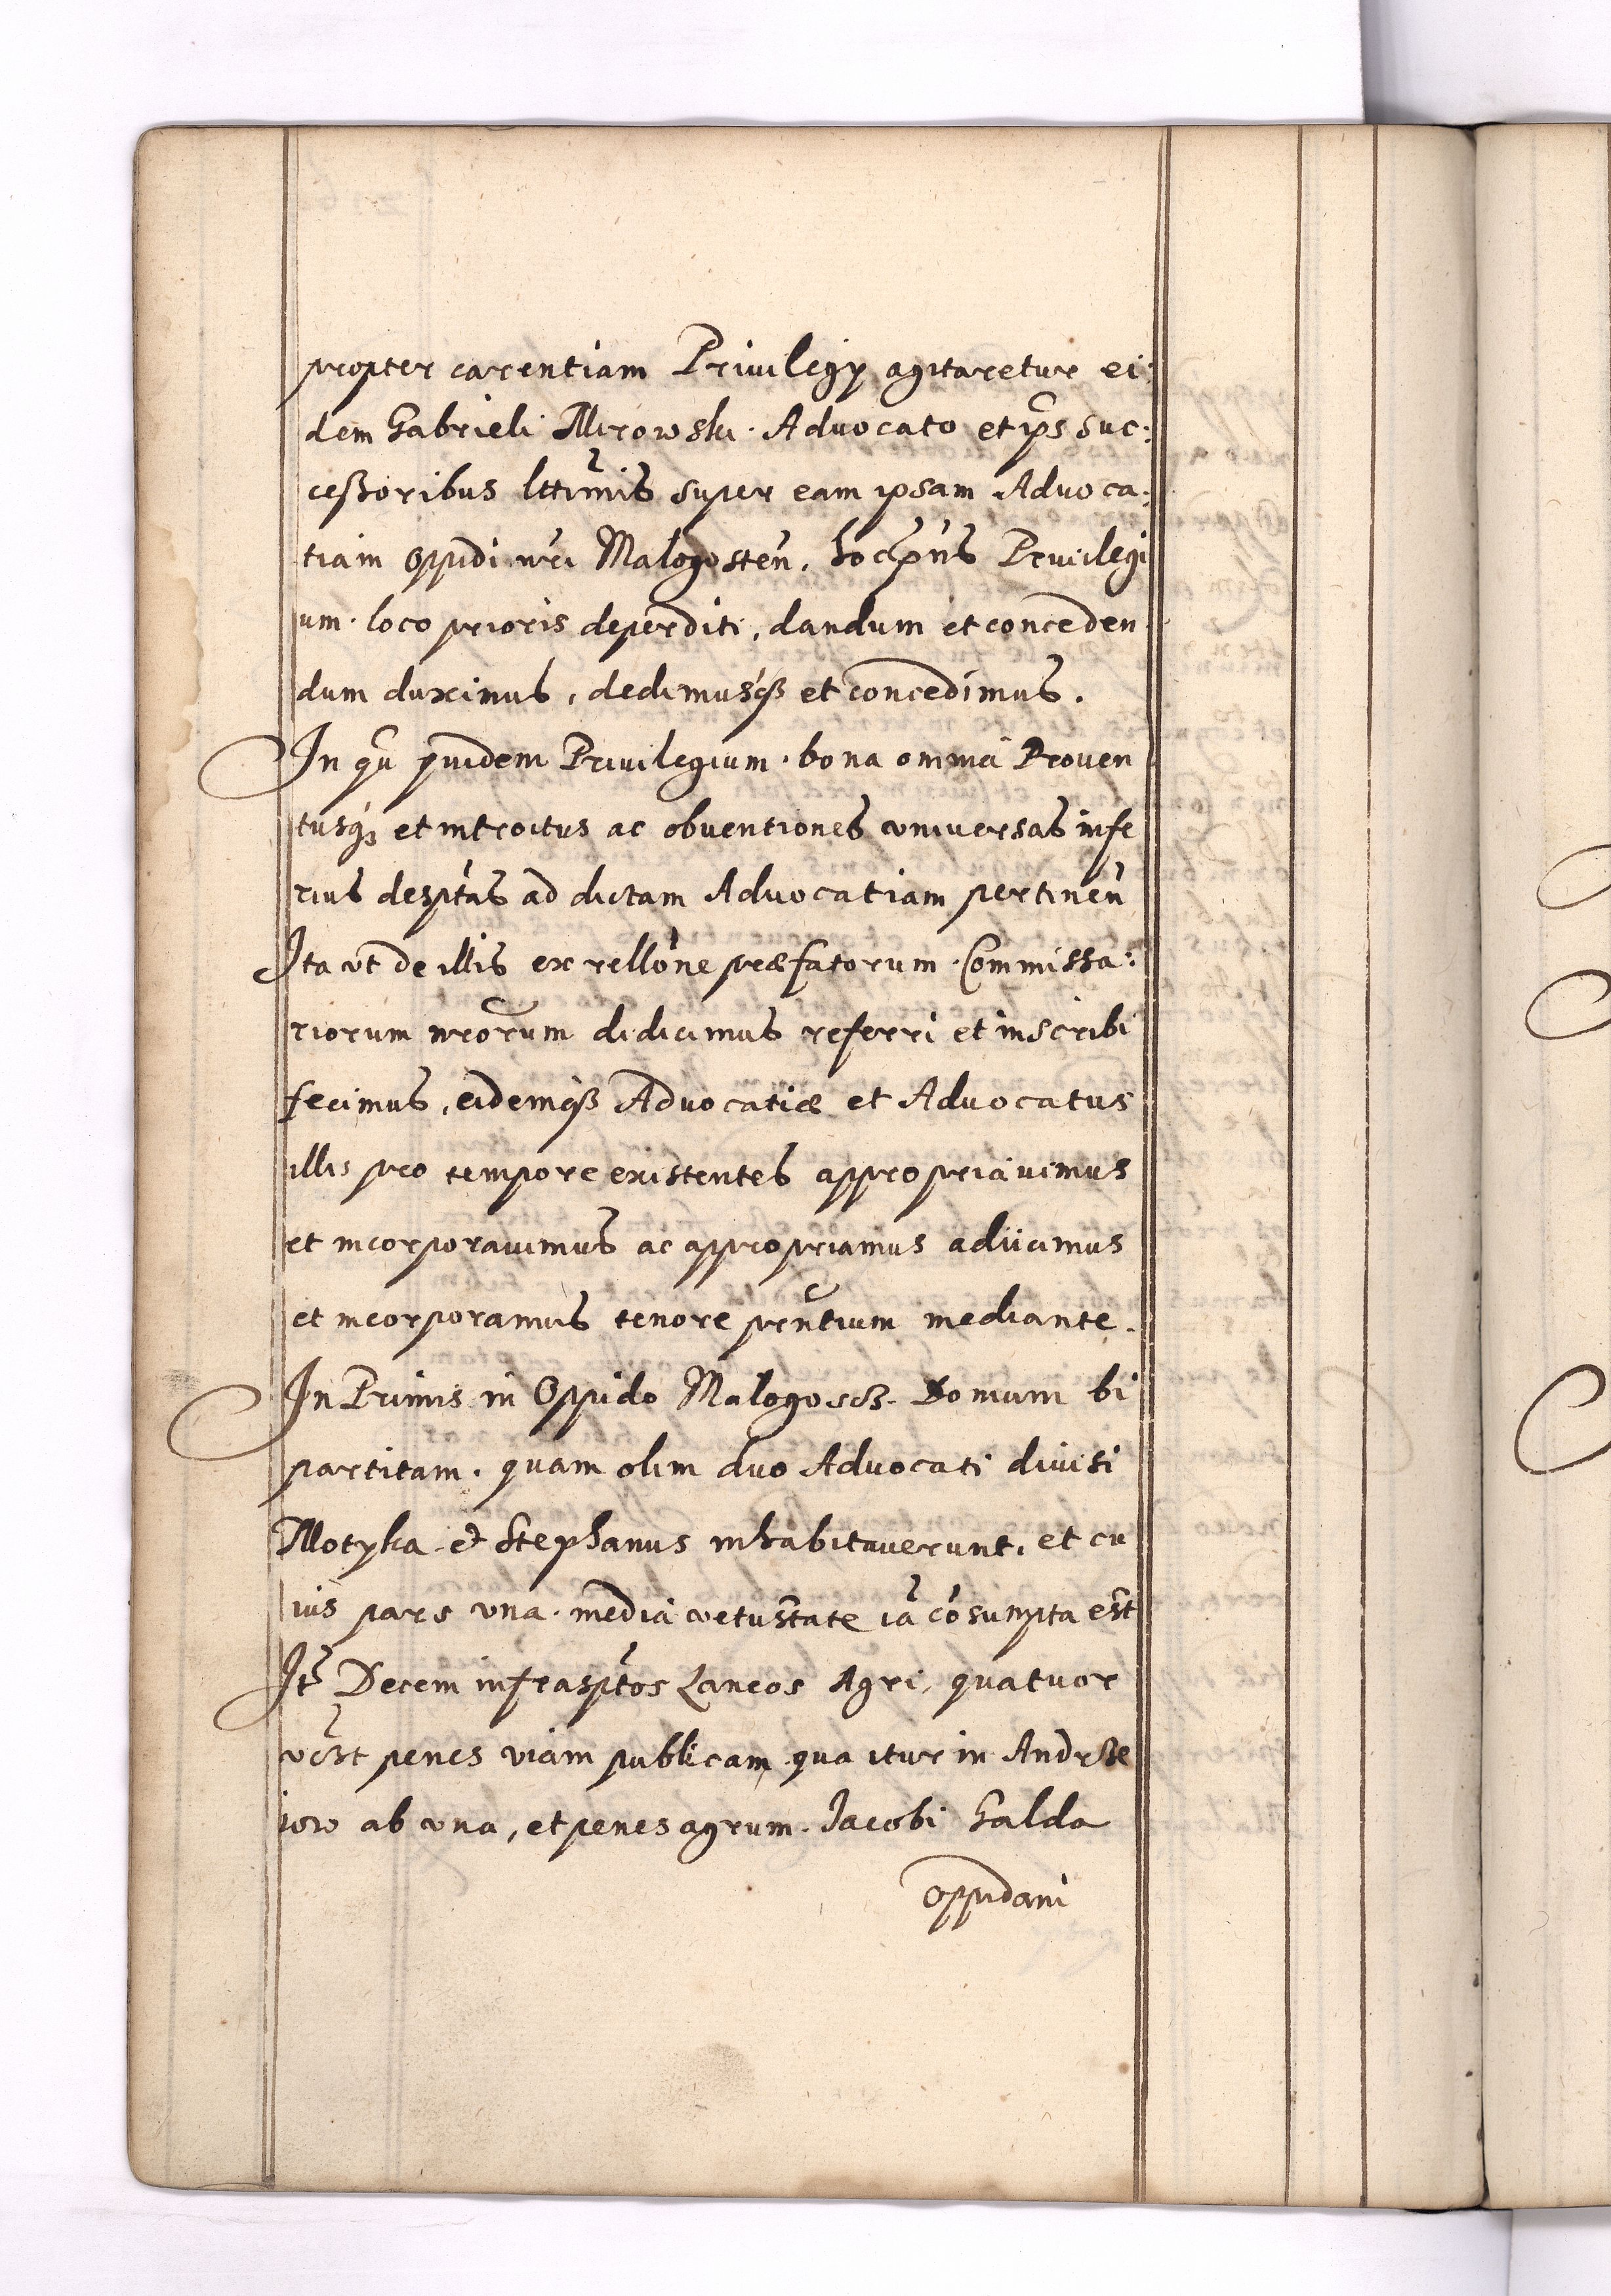 propter carentiam Priuilegÿ agitaretur ei:
dem Gabrieli Mirowski Aduocato et ip̃s suc:
ceßoribus lttĩmis super eam ipsam Aduoca:
tiam Oppidi nr̃i Malogosteñ, hoc p̃ns Priuilegi
um loco prioris deperditi, dandum et conceden
dum duximus, dedimusq́ß et concedimus.
In qũ quidem Priuilegium bona omnia Prouen
tusq́ȝ et introitus ac obuentiones vniuersas infe
rius desp̃tas ad dictam Aduocatiam pertineñ
Ita vt de illis ex rellõne præfatorum Commissa:
riorum nr̃orum didicimus referri et inscribi
fecimus, eidemq́ß Aduocatiæ et Aduocatus
illis pro tempore existentes appropriauimus
et incorporauimus ac appropriamus adiicimus
et incorporamus tenore pñtium mediante.
In Primis in Oppido Malogoscz. Domum bi
partitam, quam olim duo Aduocati diuisi
Motyka et Stephanus inhabitauerunt, et cu
ius pars vna media vetustate iã cõsumpta est
It̃ Decem infrasp̃tos Laneos Agri, quatuor
penes viam publicam qua itur in Andrze
iow ab vna, et penes agrum Iacobi Galda
Oppidani